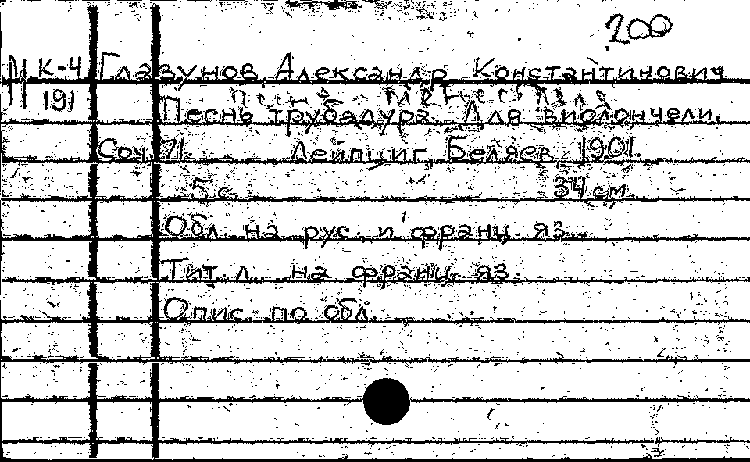 200
М К-4 Глазунов, Александр Константинович
191 Песнь Менестреля
Песнь трубадура. Для виолончели.
Соч. 71. Лейпциг, Беляев, 1901.
5 с. 34 см
Обл. на рус. и франц. яз.
Тит. л. на франц. яз.
Опис. по обл.